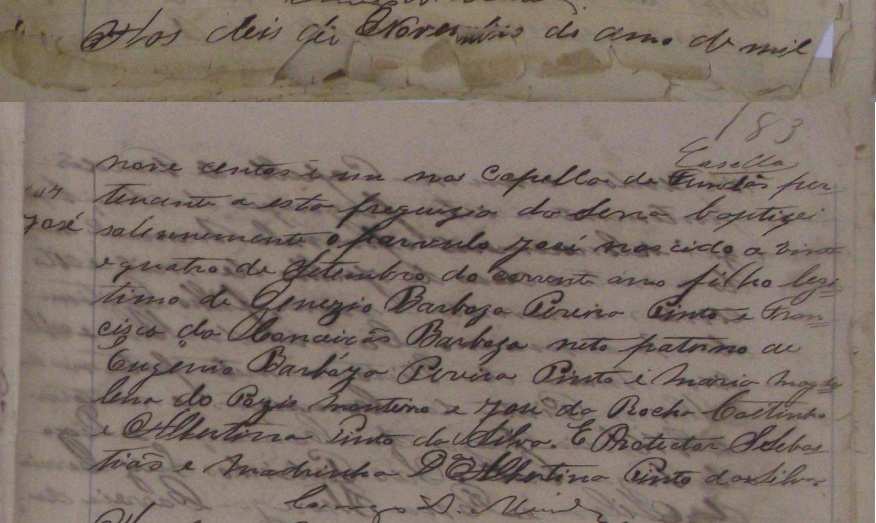 Aos deis de Novembro do anno de mil
183
Capella
nove centos e um na Capella de Fundão per
tencente a esta freguezia da Serra baptizei
José
solennemente o parvulo José nascido a vinte
e quatro de Setembro do corrente anno filho legi=
timo de Genezio Barboza Pereira Pinto e Fran=
cisca da Conceição Barboza neto paterno de
Eugenio Barboza Pereira Pinto e Maria Magda
lena do Monteiro e José da Rocha Coitinho
e Albertina Pinto da Silva. E Protector Sebas
tião e Madrinha D. Albertina Pinto da Silva.